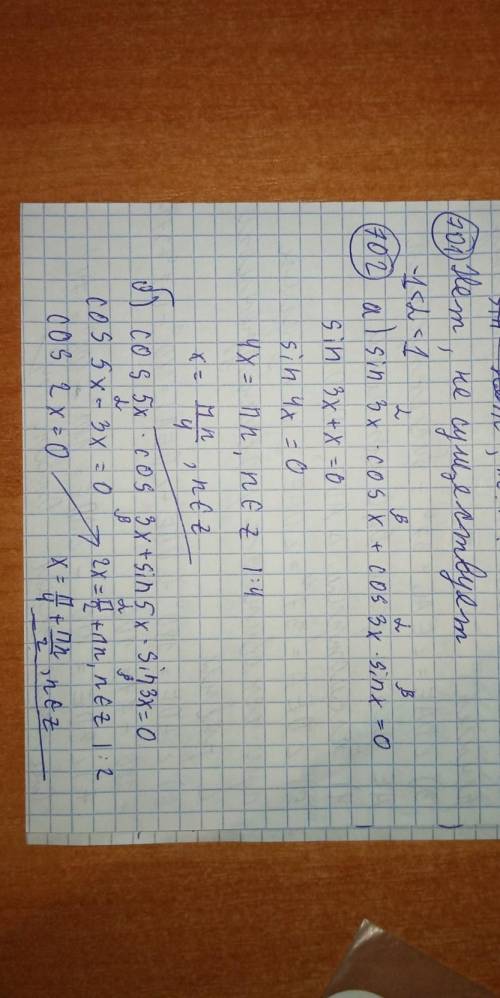 701 Нет, не существует
-1 < α < 1
702 а) sin 3x · cos x + cos 3x · sin x = 0
α β α β
sin 3x + x = 0
sin 4x = 0
4x = πn, n ∈ z | : 4
x = πn/4, n ∈ z
б) cos 5x · cos 3x + sin 5x · sin 3x = 0
α β α β
cos 5x - 3x = 0
2x = π/2 + πn, n ∈ z | : 2
cos 2x = 0
x = π/4 + πn/2, n ∈ z